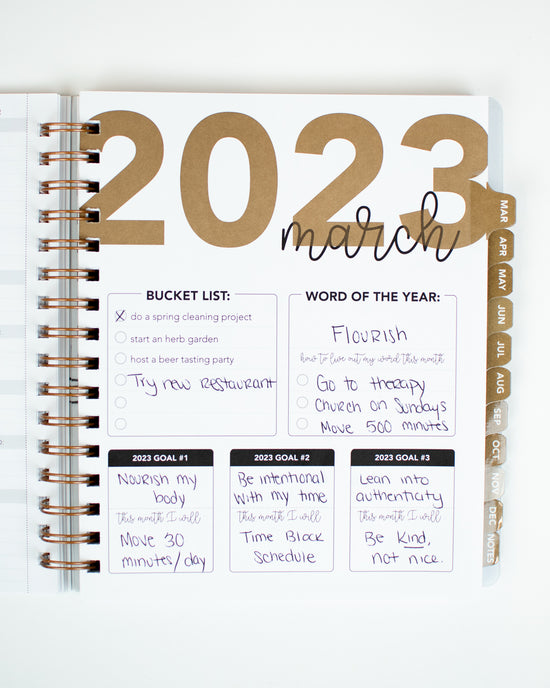 2023
march
BUCKET LIST:
do a spring cleaning project
start an herb garden
host a beer tasting party
Try new restaurant
WORD OF THE YEAR:
Flourish
how to live out my word this month
Go to therapy
Church on Sundays
Move 500 minutes
2023 GOAL #1
Nourish my
body
this month I will
Move 30
minutes/day
2023 GOAL #2
Be intentional
with my time
this month I will
Time Block
Schedule
2023 GOAL #3
Lean into
authenticity
this month I will
Be Kind,
not nice.
MAR
APR
MAY
JUN
JUL
AUG
SEP
OCT
NOV
DEC
NOTES